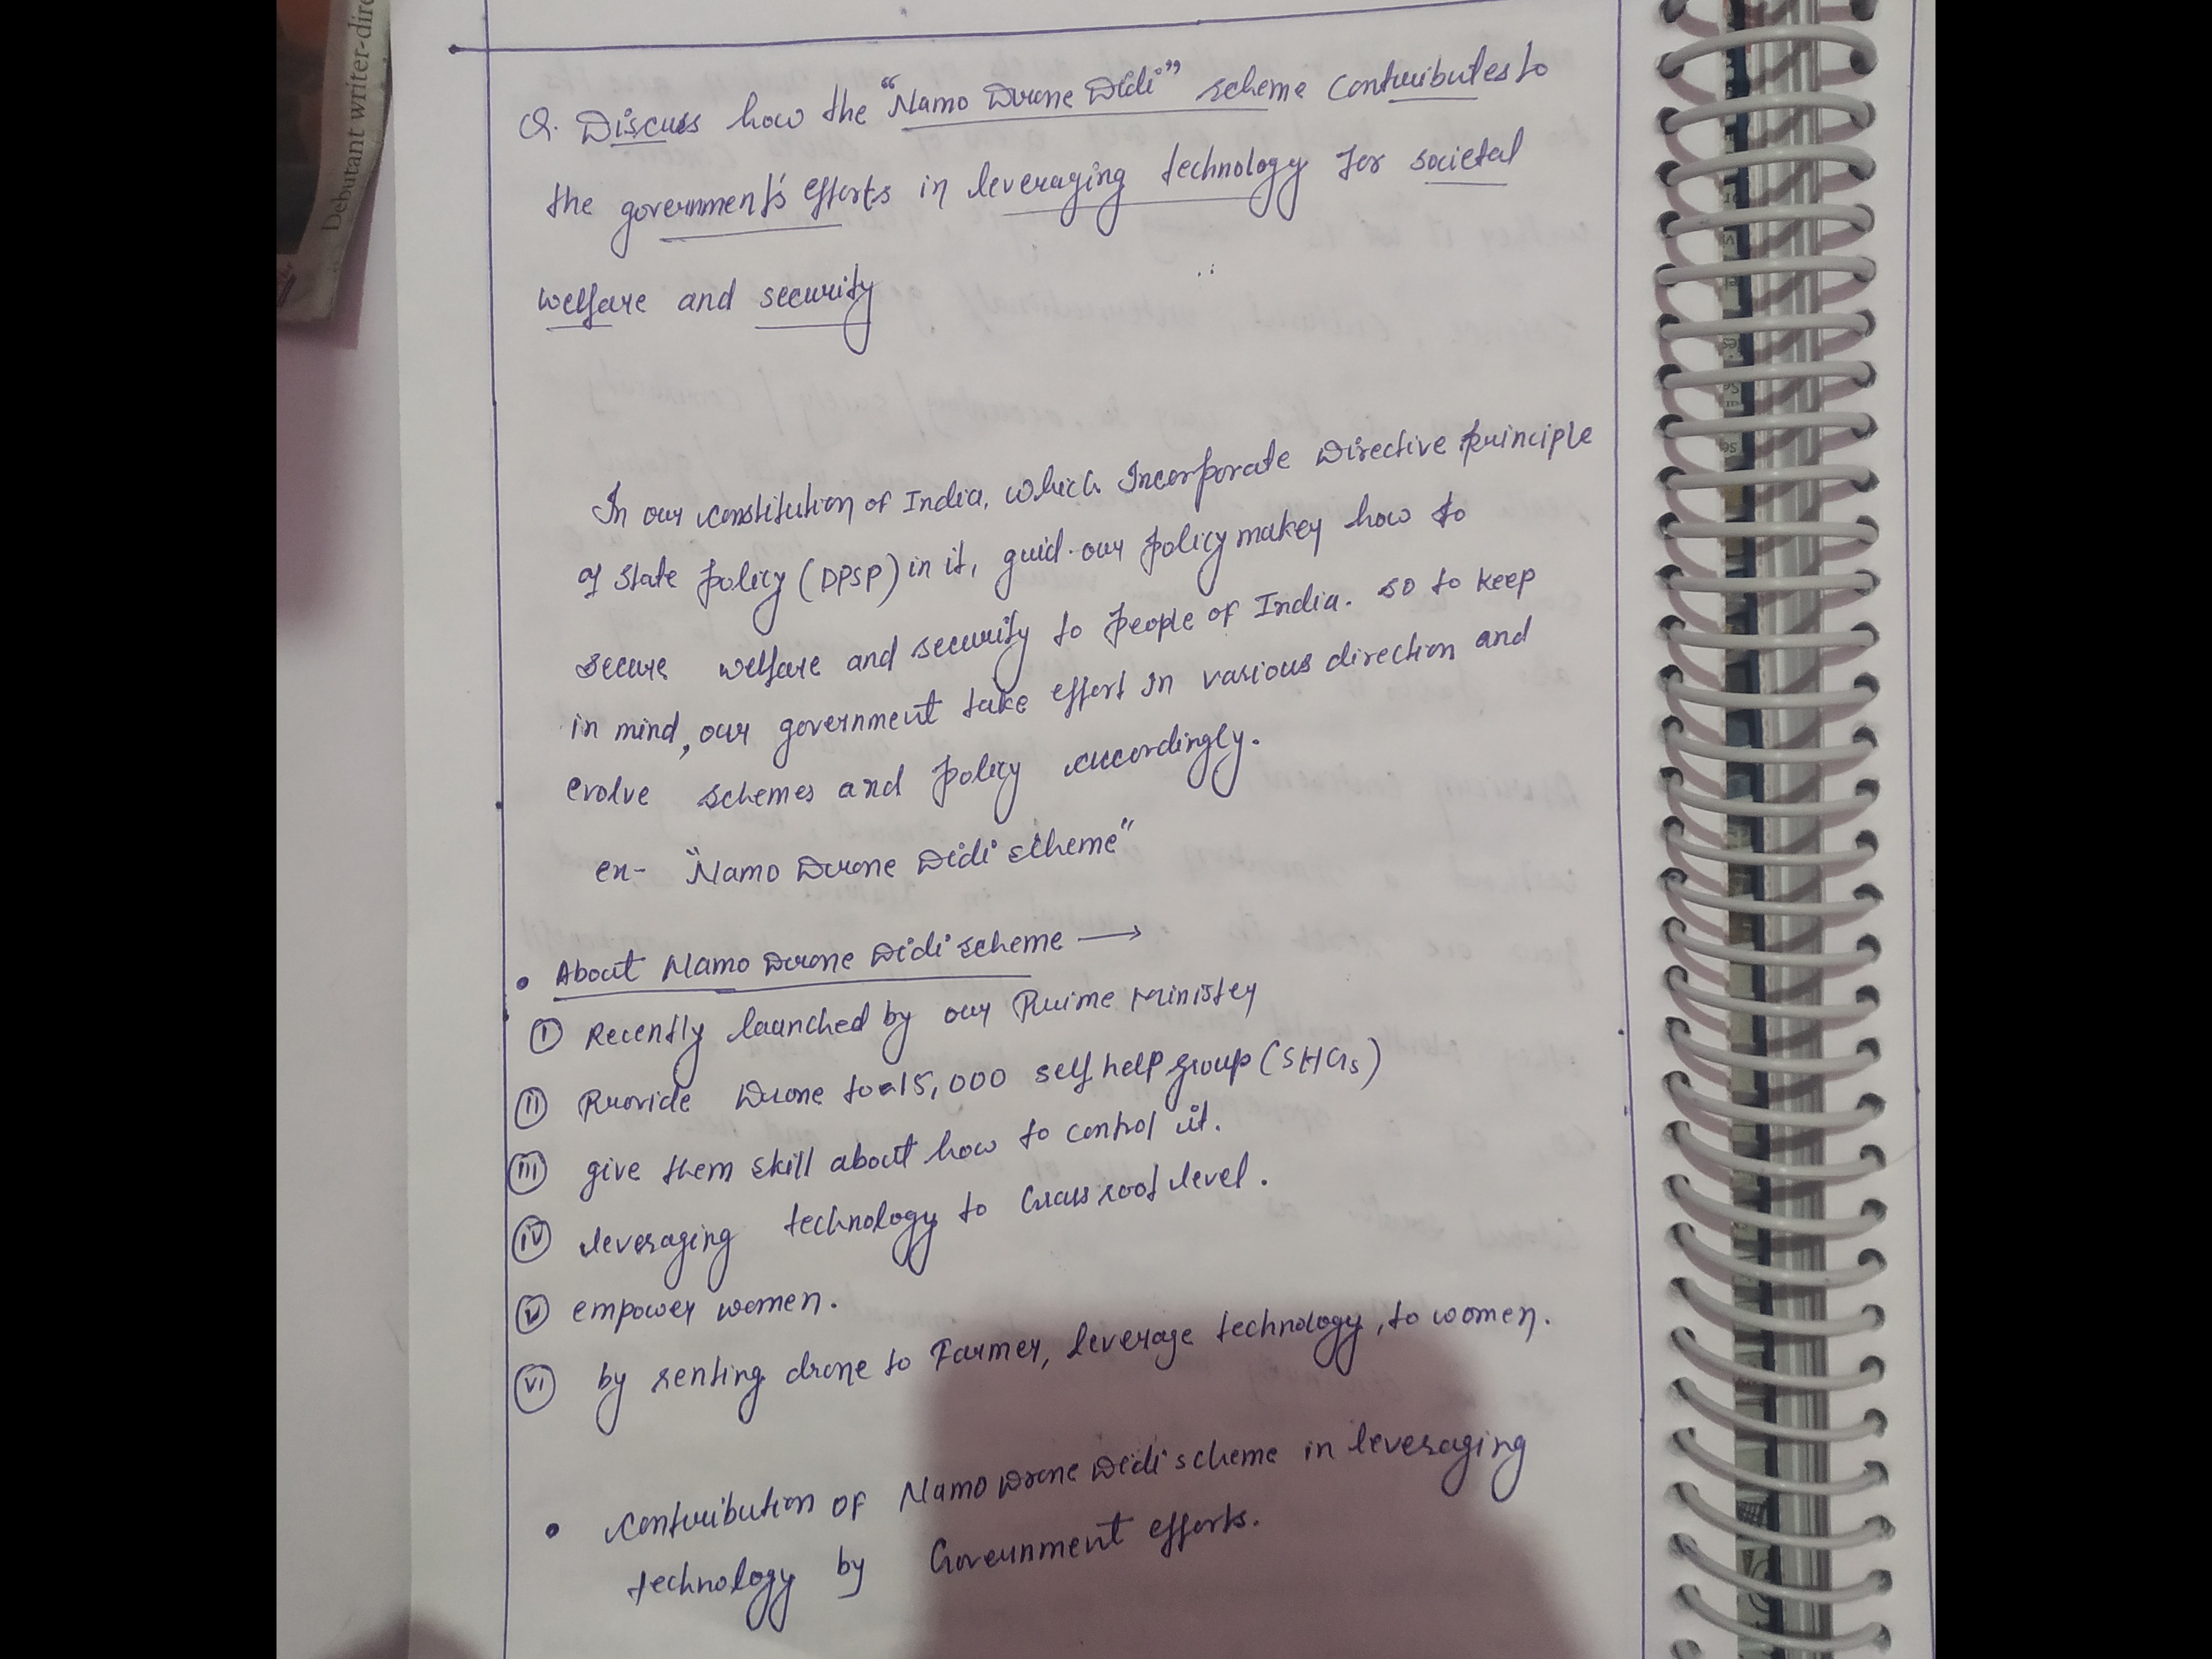 Debutant writer-dire
Q. Discuss how the "Namo Drone Didi" scheme contributes to
the government's efforts in leveraging technology for societal
welfare and security
In our constitution of India, which Incorporate Directive principle
of state policy (DPSP) in it, guid our policy maker how to
secure welfare and security to people of India. so to keep
in mind, our government take effort in various direction and
evolve schemes and policy accordingly.
ex- "Namo Drone Didi scheme"
• About Namo Drone Didi scheme →
(i) Recently launched by our Prime Minister
(ii) Provide Drone to 15,000 self help group (SHGs)
(iii) give them skill about how to control it.
(iv) leveraging technology to Grass root level.
(v) empower women.
(vi) by renting drone to Farmer, leverage technology, to women.
• contribution of Namo Drone Didi scheme in leveraging
technology by Government efforts.